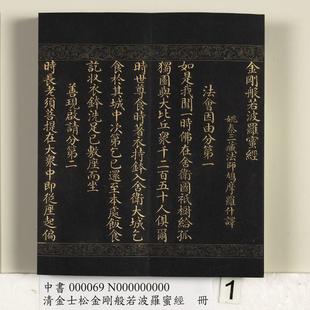 金剛般若波羅蜜經
姚秦三藏法師鳩摩羅什譯
法會因由分第一
如是我聞一時佛在舍衛國祇樹給孤
獨園與大比丘衆千二百五十人俱爾
時世尊食時著衣持鉢入舍衛大城乞
食於其城中次第乞已還至本處飯食
訖收衣鉢洗足已敷座而坐
善現啟請分第二
時長老須菩提在大衆中即從座起偏
中書 000069 N000000000
清金士松金剛般若波羅蜜經 冊
1